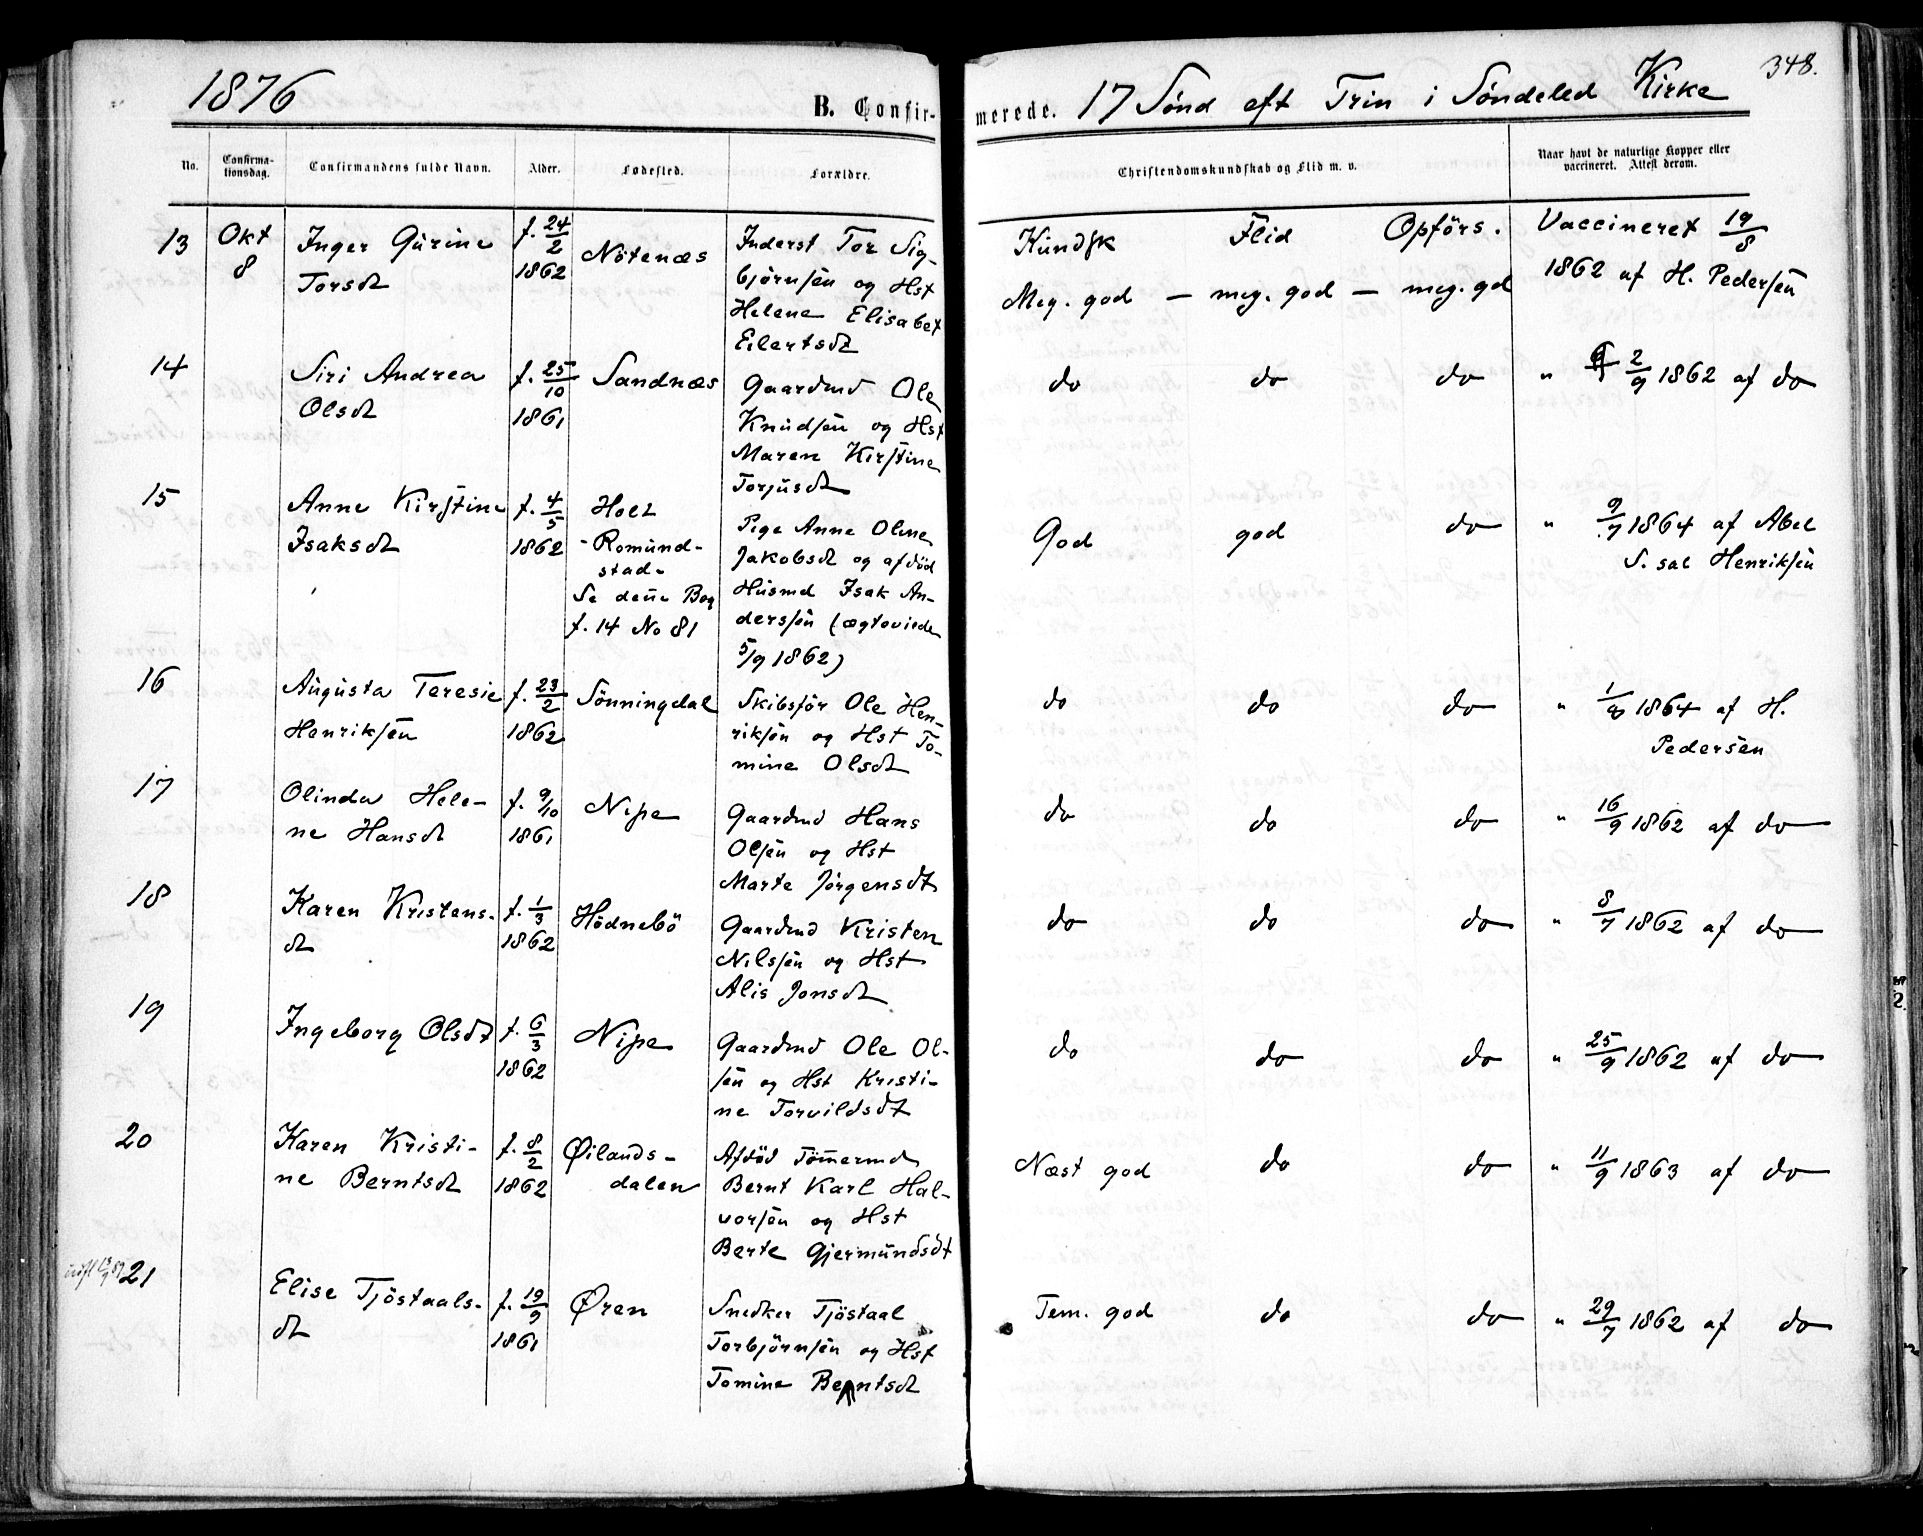 1876
B. Confir-
merede. 17 Sönd eft Trin i Söndeled Kirke
348.
No. Confirma-tionsdag. Confirmandens fulde Navn. Alder. Fødested. Forældre.
Christendomskundskab og Flid m. v.
Naar havt de naturlige Kopper eller
vaccineret. Attest derom.
Kundsk Flid Opförs.
13 Okt 8 Inger Gurine f. 24/2 Nötenæs Inderst Tor Sig-
Torsdt 1862 björnsen og Hst
Helene Elisabet
Eilertsdt
Meg. god — meg. god — meg. gd
Vaccineret 19/8
1862 af H. Pedersen
14 Siri Andrea f. 25/10 Sandnæs Gaardmd Ole
Olsdt 1861 Knudsen og Hst
Maren Kirstine
Torjusdt
do do do " 2/9 1862 af do
15 Anne Kirstine f. 4/5 Holt Pige Anne Oline
Isaksdt 1862 - Romund- Jakobsdt og afdöd
stad- Husmd Isak An-
Se denne Bog dersen (ægteviede
f. 14 No 81 5/9 1862)
God god do " 9/7 1864 af Abel
S. sal Henriksen
16 Augusta Teresie f. 23/2 Sönningdal Skibsför Ole Hen-
Henriksen 1862 riksen og Hst To-
mine Olsdt
do do do " 1/8 1864 af H.
Pedersen
17 Olinda Hele- f. 9/10 Nipe Gaardmd Hans
ne Hansdt 1861 Olsen og Hst
Marte Jörgensdt
do do do " 16/9 1862 af do
18 Karen Kristens- f. 1/3 Hödnebö Gaardmd Kristen
dt 1862 Nilssen og Hst
Alis Jonsdt
do do do " 8/7 1862 af do
19 Ingeborg Olsdt f. 6/3 Nipe Gaardmd Ole Ol-
1862 sen og Hst Kristi-
ne Torvildsdt
do do do " 25/9 1862 af do
20 Karen Kristi- f. 8/2 Øilands- Afdöd Tömermd
ne Berntsdt 1862 dalen Bernt Karl Hal-
vorsen og Hst
Berte Gjermundsdt
Næst god do do " 11/9 1863 af do
21 Elise Tjöstaals- f. 19/9 Øren Snedker Tjöstaal
dt 1861 Torbjörnsen og Hst
Tomine Berntsdt
Tem. god do do " 29/7 1862 af do